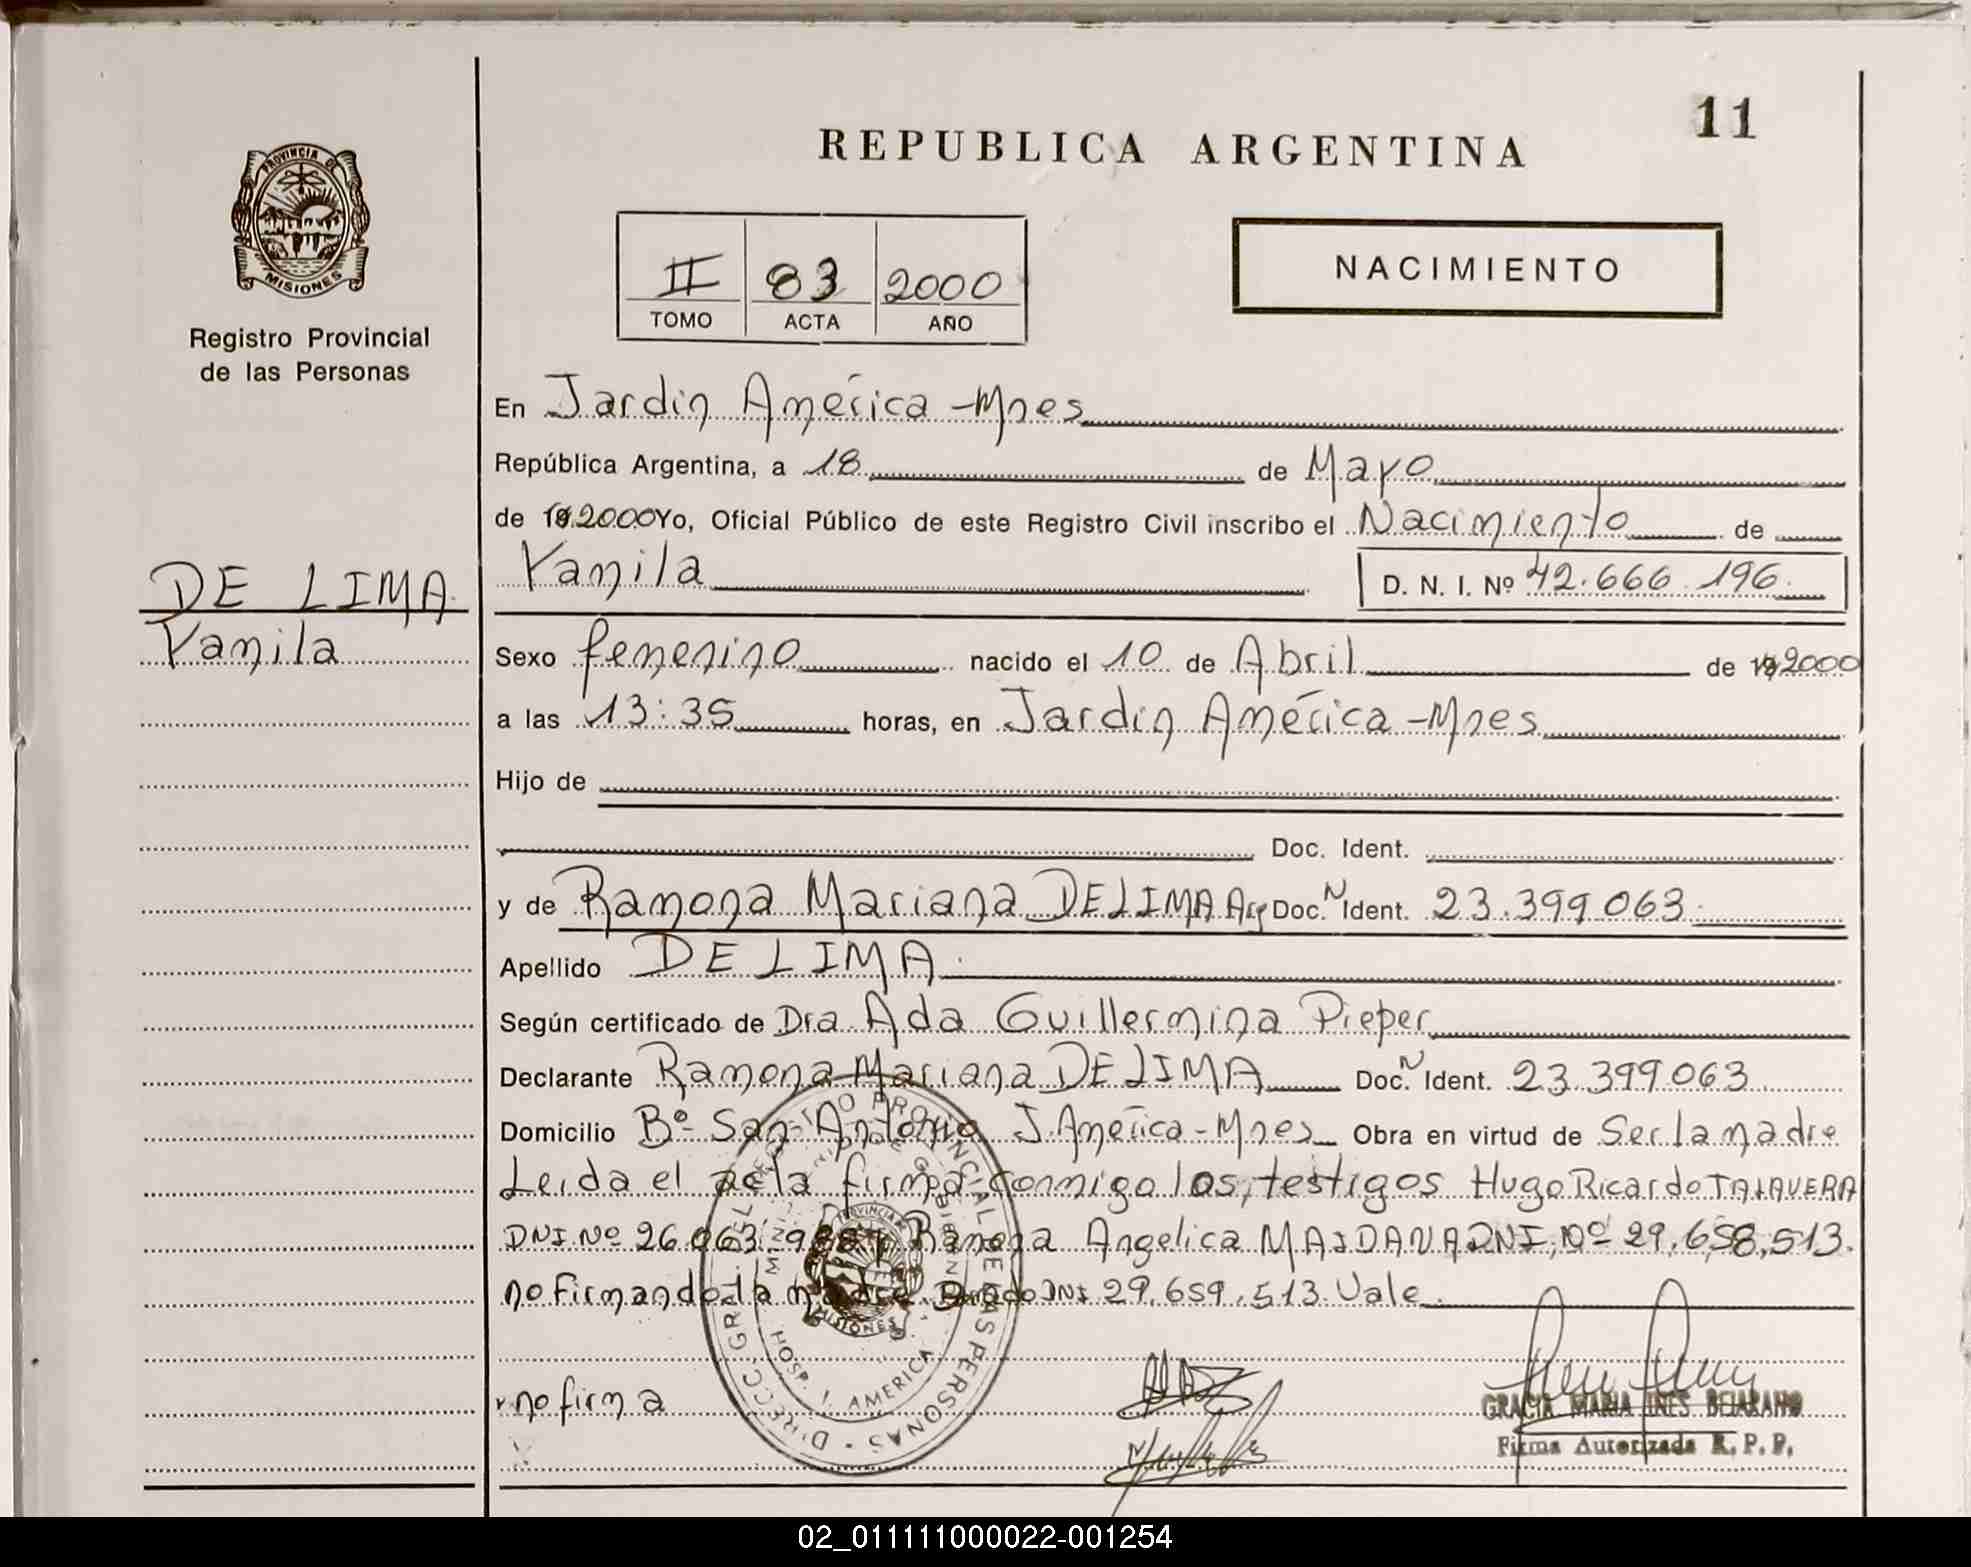 11
REPUBLICA ARGENTINA
PROVINCIA DE
MISIONES
Registro Provincial
de las Personas
II 83 2000
TOMO ACTA AÑO
NACIMIENTO
En Jardín América - Mnes
República Argentina, a 18 de Mayo
de 19 2000 Yo, Oficial Público de este Registro Civil inscribo el Nacimiento de
Yamila D. N. I. Nº 42.666.196.
DE LIMA
Yamila
Sexo femenino nacido el 10 de Abril de 19 2000
a las 13:35 horas, en Jardín América - Mnes
Hijo de
Doc. Ident.
y de Ramona Mariana DE LIMA Arg Doc. N Ident. 23.399.063
Apellido DE LIMA.
Según certificado de Dra. Ada Guillermina Pieper
Declarante Ramona Mariana DE LIMA Doc. N Ident. 23.399.063
Domicilio Bº San Antonio J. América - Mnes Obra en virtud de Ser la madre
Leida el acta firman conmigo los testigos Hugo Ricardo TALAVERA
DNI Nº 26.063. Ramona Angelica MAIDANA DNI, Nº 29.658.513.
no firmando la madre. DNI 29.659.513. Vale.
no firma
DIRECC. GRAL. DEL REGISTRO PROVINCIAL DE LAS PERSONAS
HOSP. J. AMERICA
MISIONES
GRACIA MARIA INES BEJARANO
Firma Autorizada R. P. P.
02_011111000022-001254